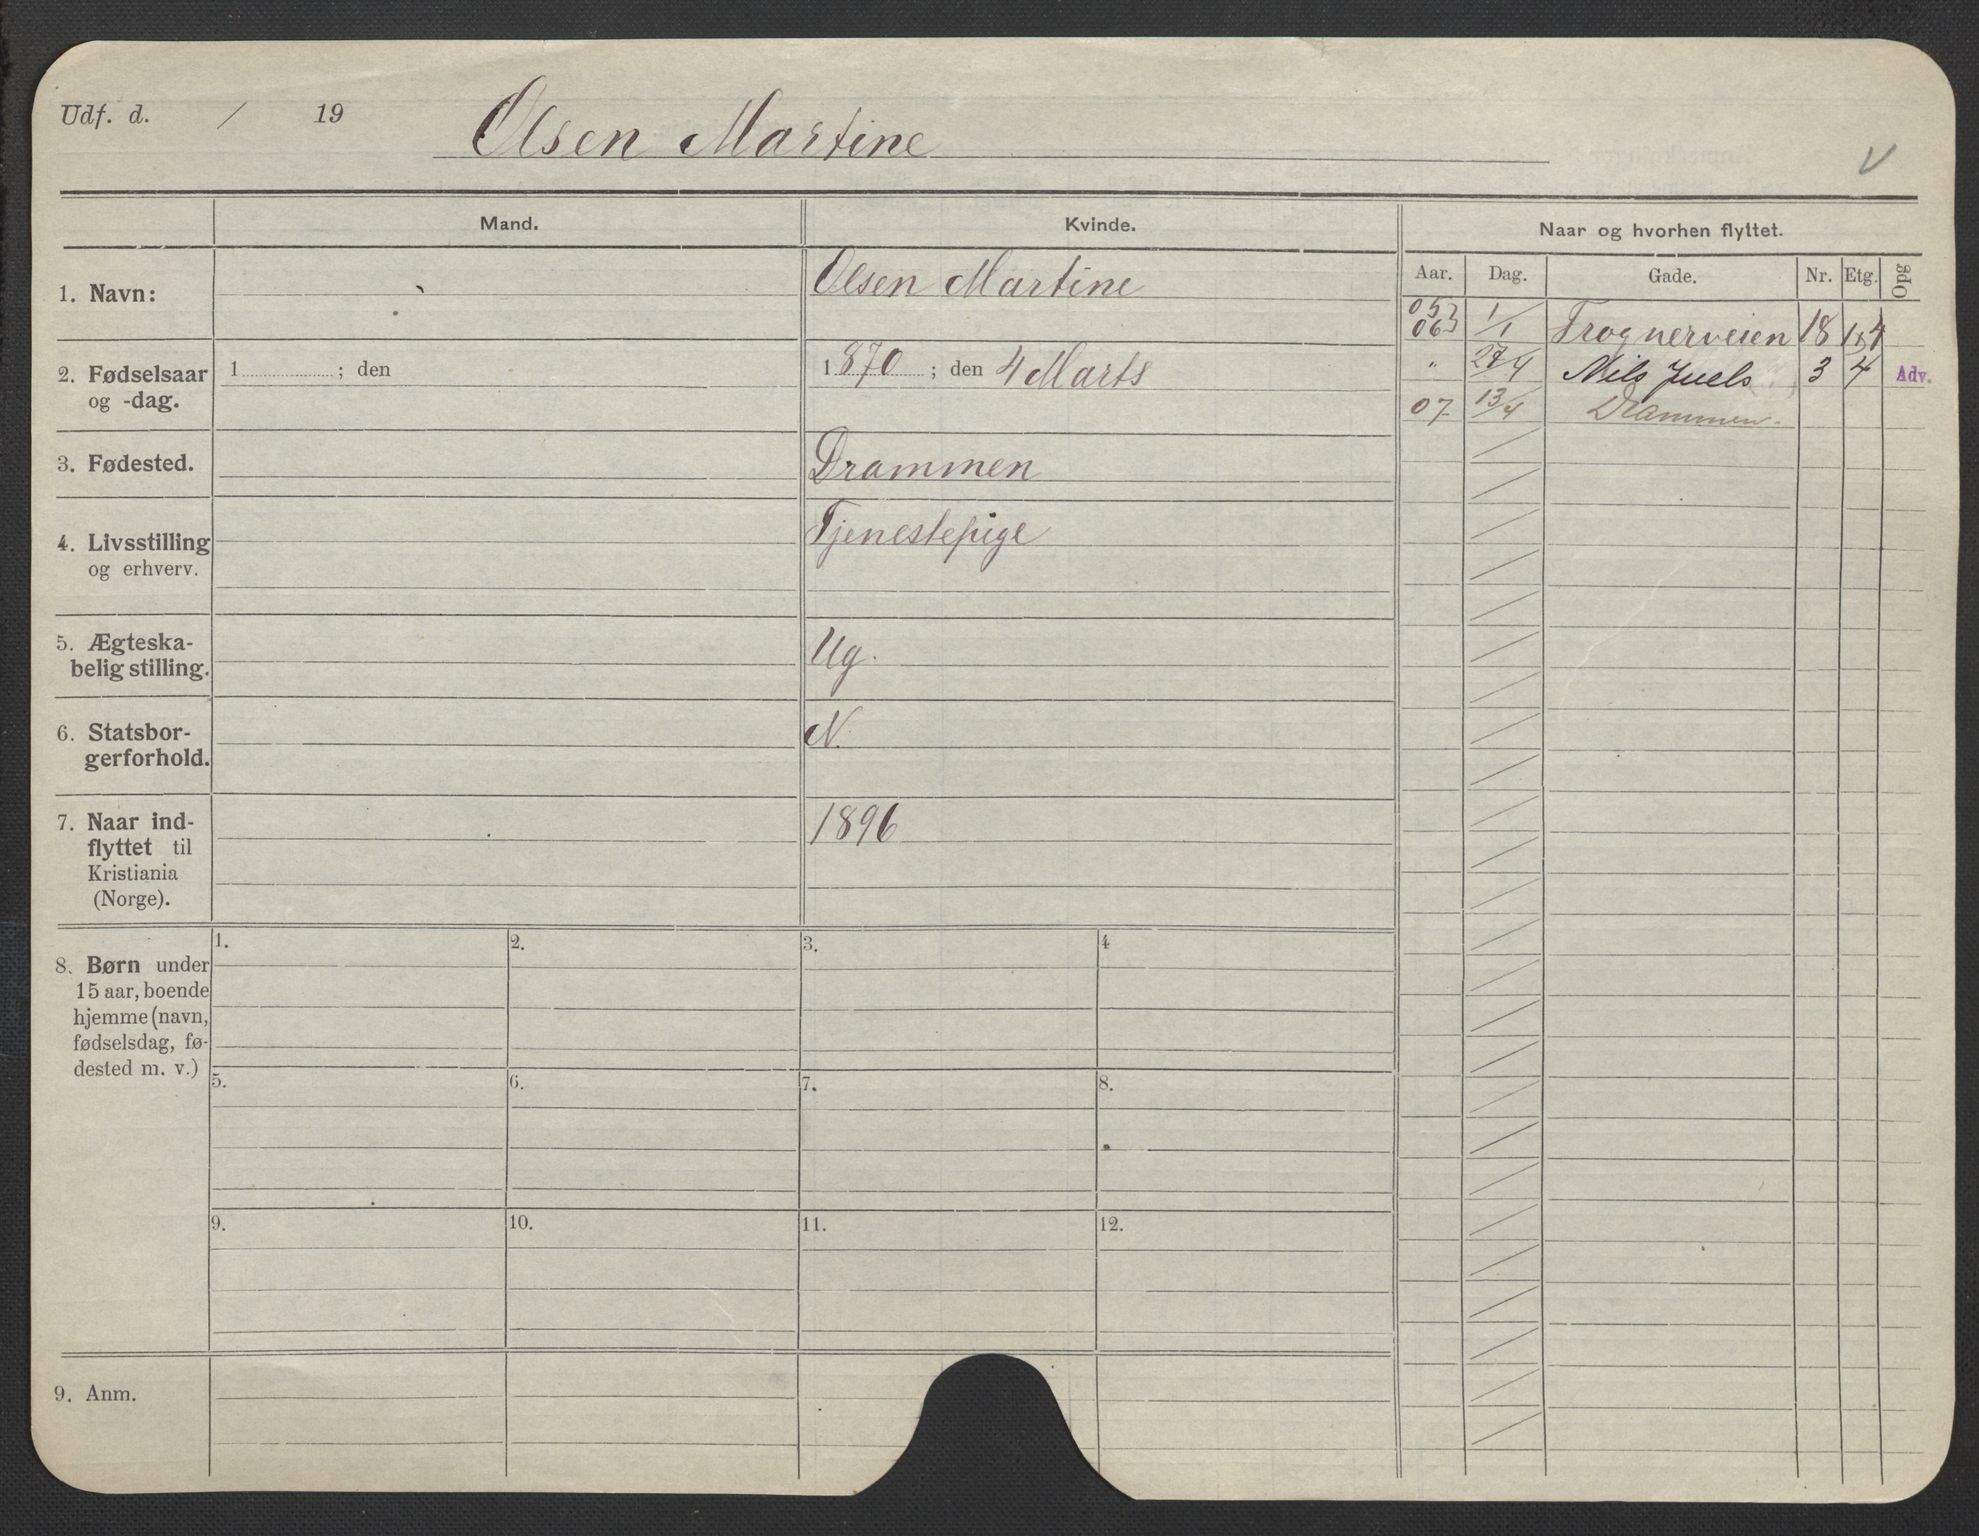 Udf. d. / 19 Olsen Martine
V
Mand. Kvinde. Naar og hvorhen flyttet.
Aar. Dag. Gade. Nr. Etg. Opg
1. Navn: Olsen Martine
05 06 1/1 Trognerveien 18
2. Fødselsaar og -dag. 1 ; den 1870 ; den 4 Marts
" 27/4 Nils Juels 3 4 Adv.
07 13/4 Drammen.
3. Fødested. Drammen
4. Livsstilling Tjenestepige
og erhverv.
5. Ægteska-
belig stilling. Ug.
6. Statsbor- N.
gerforhold.
7. Naar ind- 1896
flyttet til
Kristiania
(Norge).
8. Børn under
15 aar, boende
hjemme (navn,
fødselsdag, fø-
dested m. v.)
1. 2. 3. 4
5. 6. 7. 8.
9. 10. 11. 12.
9. Anm.